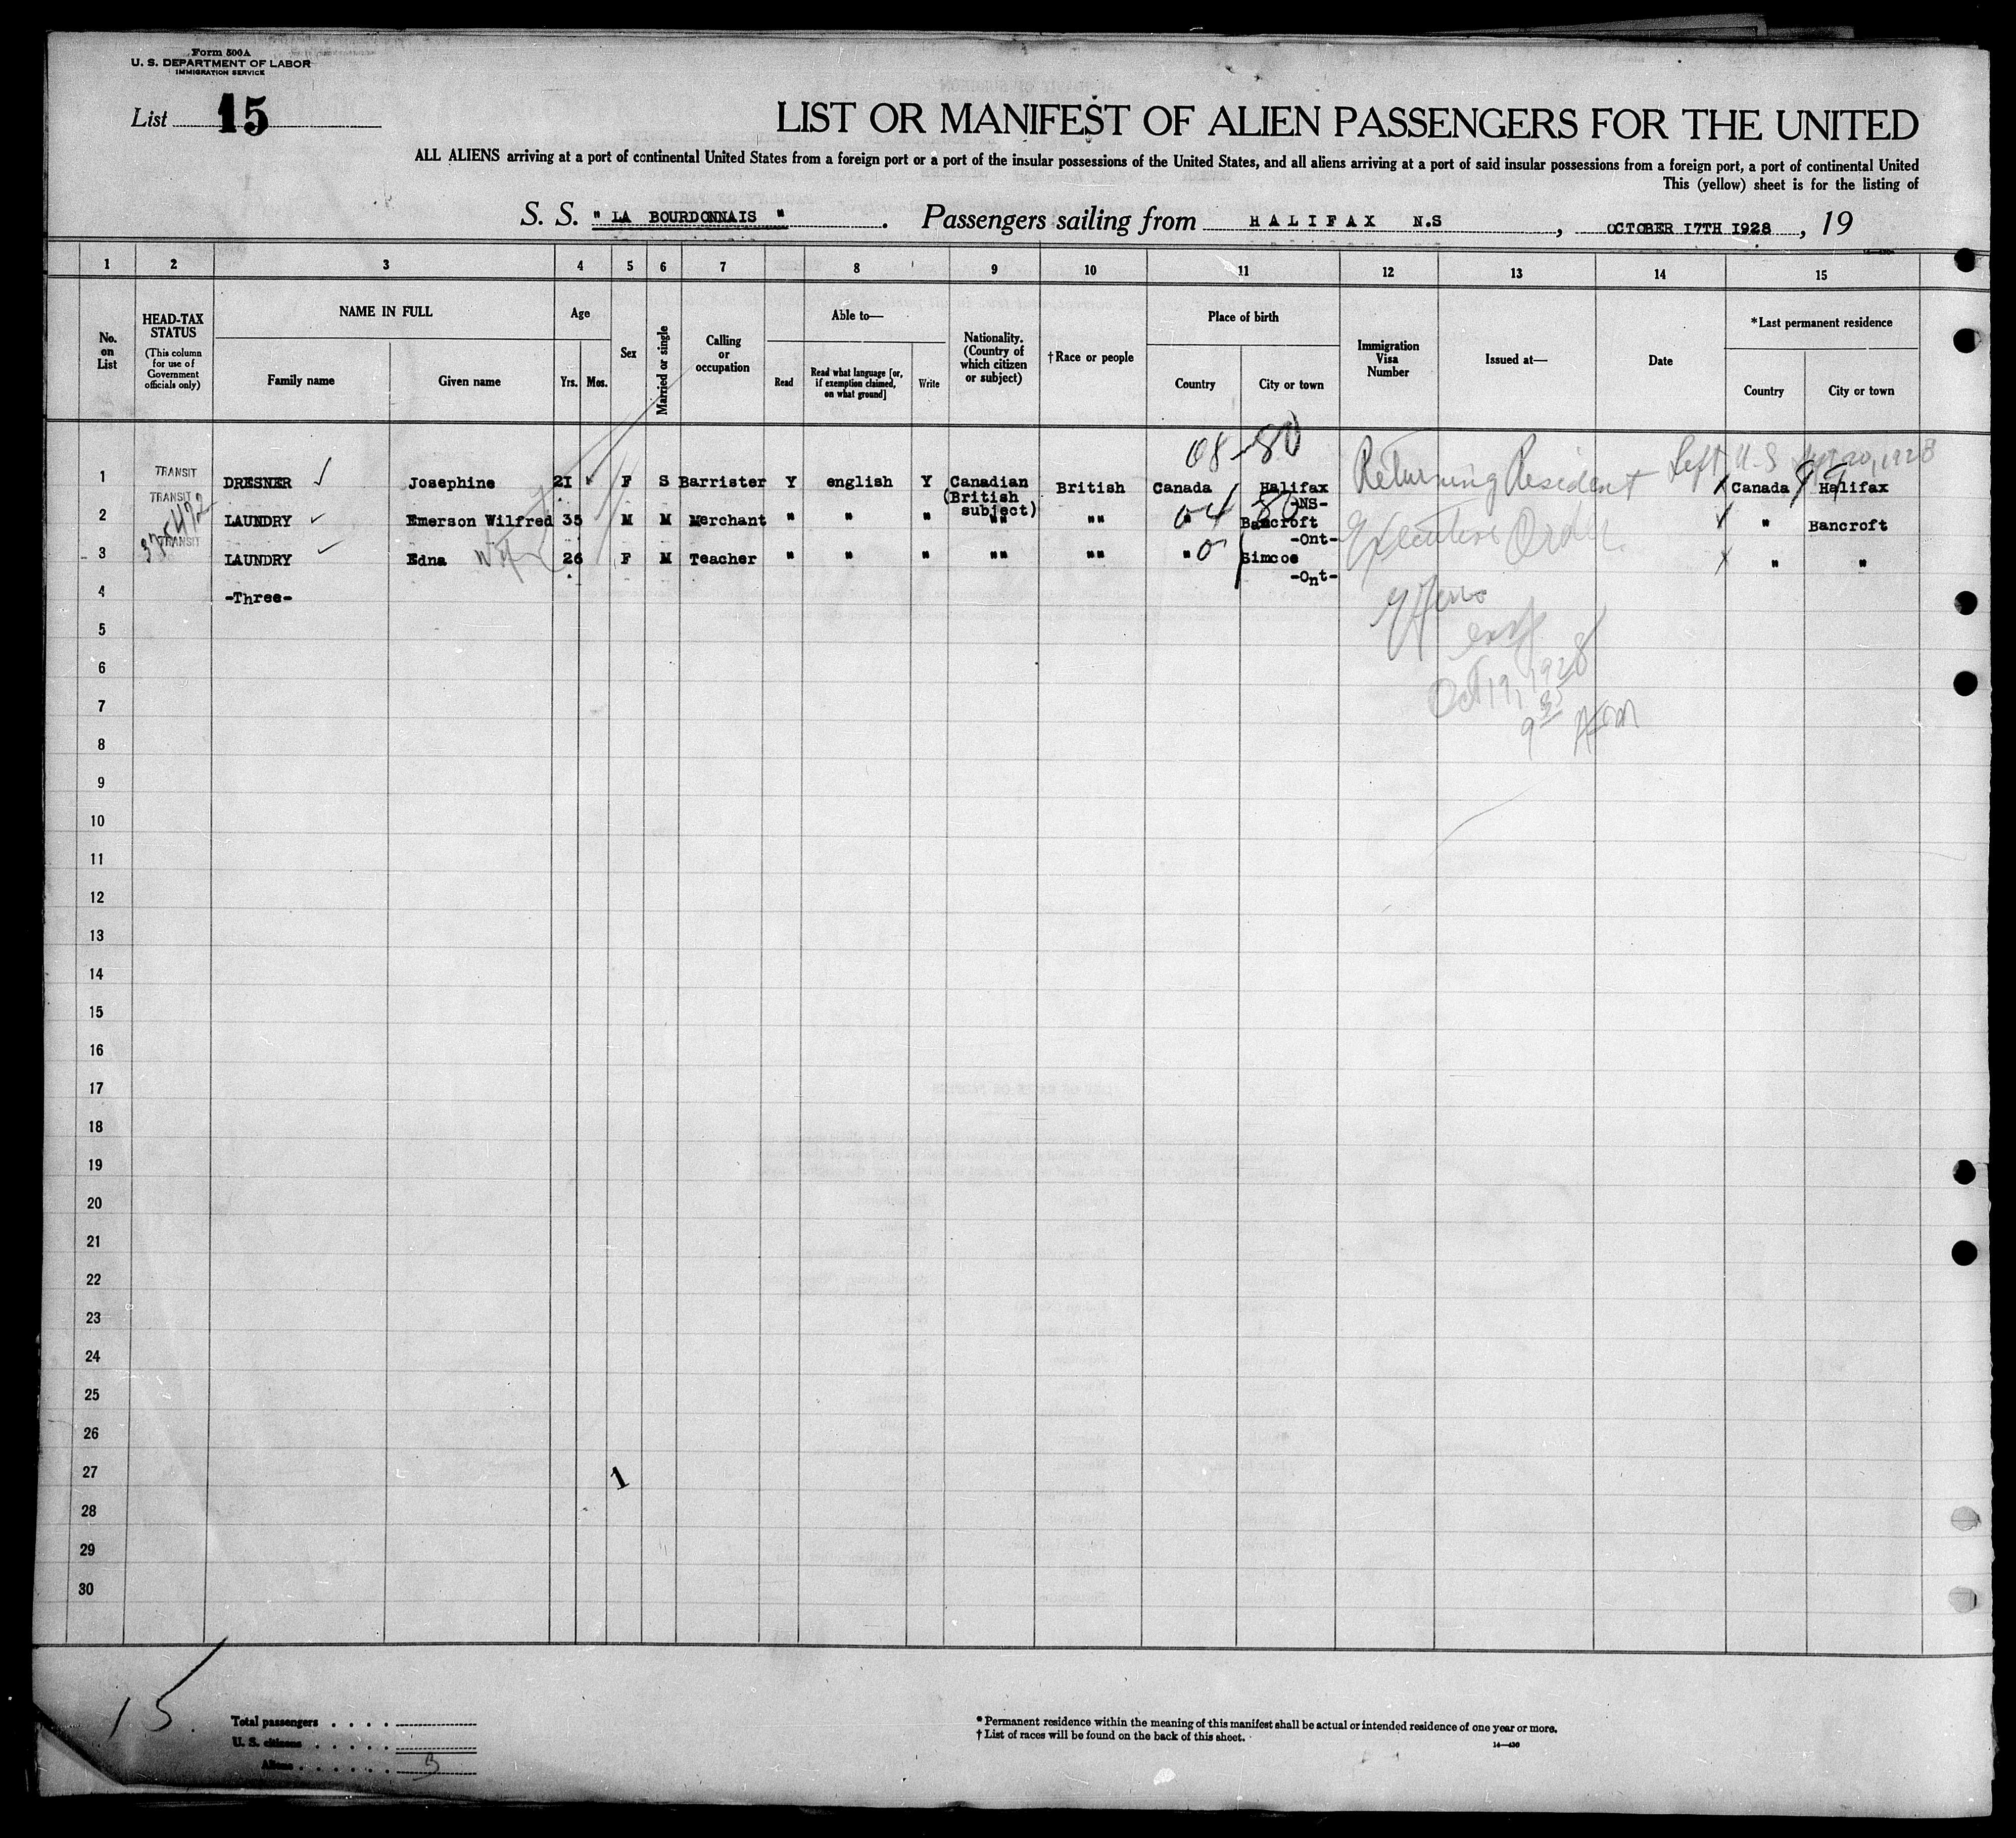 Form 500A
U. S. DEPARTMENT OF LABOR
IMMIGRATION SERVICE
List 15
LIST OR MANIFEST OF ALIEN PASSENGERS FOR THE UNITED
ALL ALIENS arriving at a port of continental United States from a foreign port or a port of the insular possessions of the United States, and all aliens arriving at a port of said insular possessions from a foreign port, a port of continental United
This (yellow) sheet is for the listing of
S. S. " LA BOURDONNAIS ". Passengers sailing from HALIFAX N.S, OCTOBER 17TH 1928, 19
1 2 3 4 5 6 7 8 9 10 11 12 13 14 15
No. on List
HEAD-TAX STATUS
(This column for use of Government officials only)
NAME IN FULL
Family name Given name
Age
Yrs. Mos.
Sex
Married or single
Calling or occupation
Able to—
Read
Read what language [or, if exemption claimed, on what ground]
Write
Nationality. (Country of which citizen or subject)
†Race or people
Place of birth
Country City or town
Immigration Visa Number
Issued at—
Date
*Last permanent residence
Country City or town
08-80
1 TRANSIT DRESNER ✓ Josephine 21 F S Barrister Y english Y Canadian (British subject) British Canada Halifax -NS- Returning Resident Left U.S Sept 20, 1928 Canada Halifax
2 TRANSIT LAUNDRY ✓ Emerson Wilfred 35 M M Merchant " " " "" "" " 04 80 Bancroft -Ont- Executive Order " Bancroft
3 TRANSIT LAUNDRY ✓ Edna 26 F M Teacher " " " "" "" " Simcoe -Ont- " "
4 -Three-
5
6
Oct 19, 1928
7
9 30 AM
8
9
10
11
12
13
14
15
16
17
18
19
20
21
22
23
24
25
26
27 1
28
29
30
15.
Total passengers
U. S. citizens
Aliens 3
* Permanent residence within the meaning of this manifest shall be actual or intended residence of one year or more.
† List of races will be found on the back of this sheet.
14—430